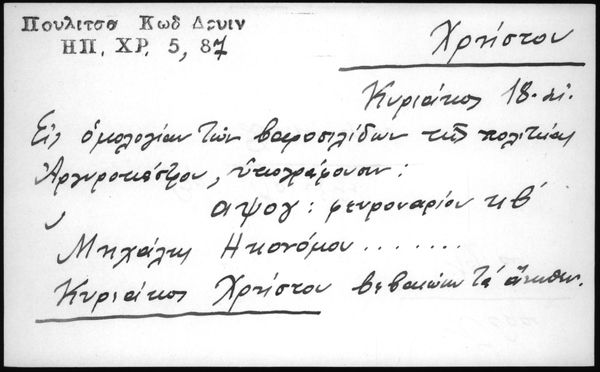 Πουλιτσα Κωδ Δρυιν
ΗΠ. ΧΡ. 5, 87
Χρήστου
Κυριάκος 18.αἰ.
Εἰς ὁμολογίαν τῶν βαροσιλίδων τῆς πολιτείας
Ἀργυροκάστρου, ὑπογράφουσιν:
αψογ: φευρουαρίου κβ´
Μιχάλης Ηκονόμου.......
Κυριάκος Χρήστου βεβαιώνω τά ἄνωθεν.